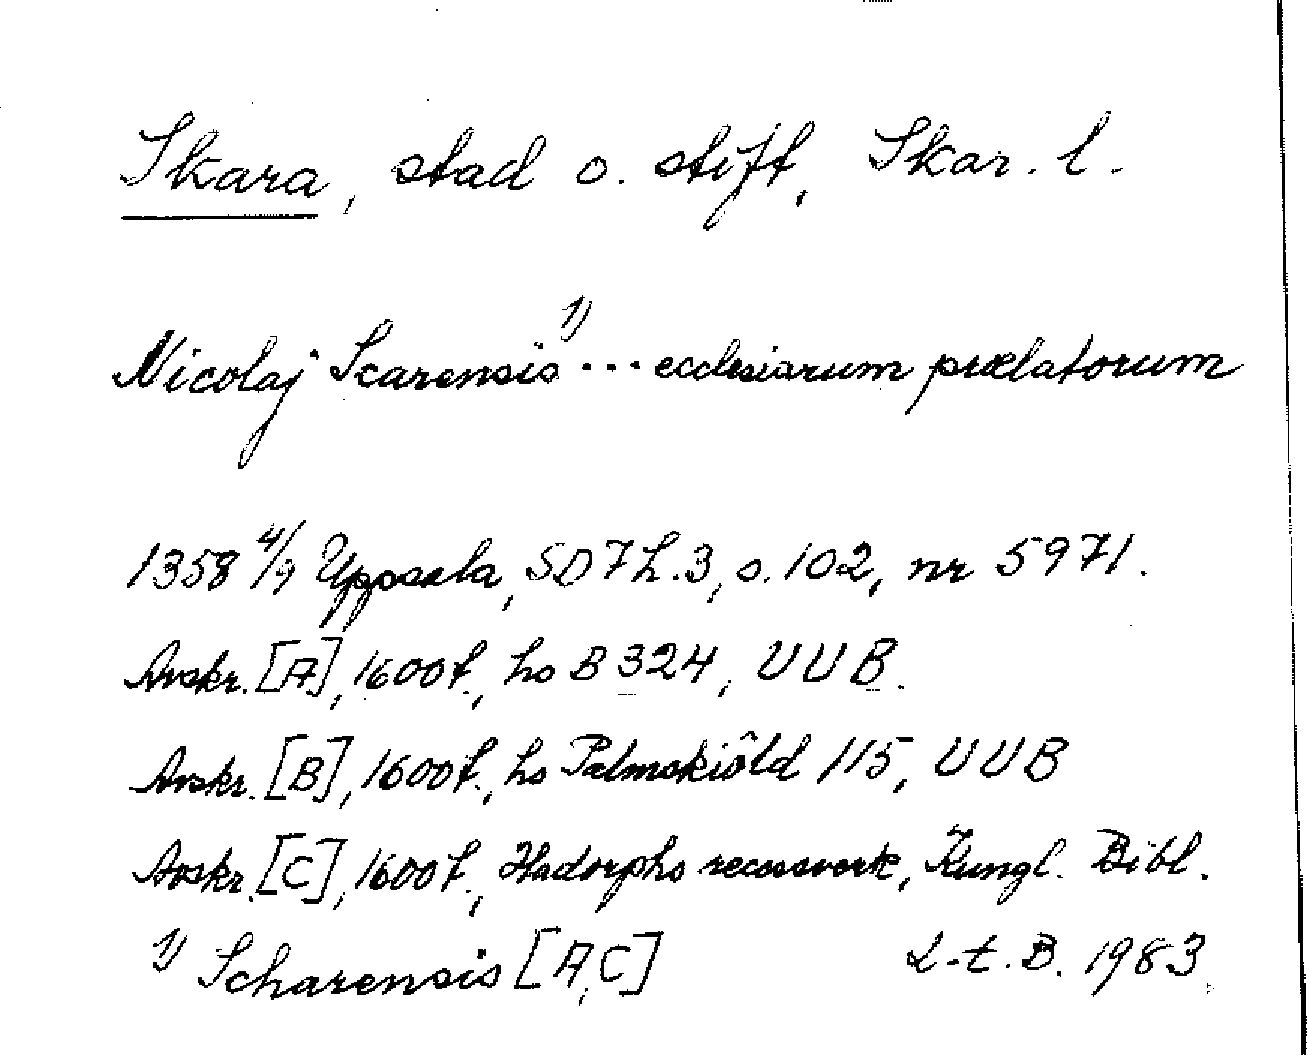 Skara, stad o. stift, Skar. l.
Nicolaj Scarensis 1) ... ecclesiarum prælatorum
1358 4/9 Uppsala, SD 7 h.3, s. 102, nr 5971.
Avskr. [A], 1600t., hs B 324, UUB.
Avskr. [B], 1600t., hs Palmskiöld 115, UUB
Avskr. [C], 1600t., Hadorphs recessverk, Kungl. Bibl.
1) Scharensis [A, C] L-t. B. 1983